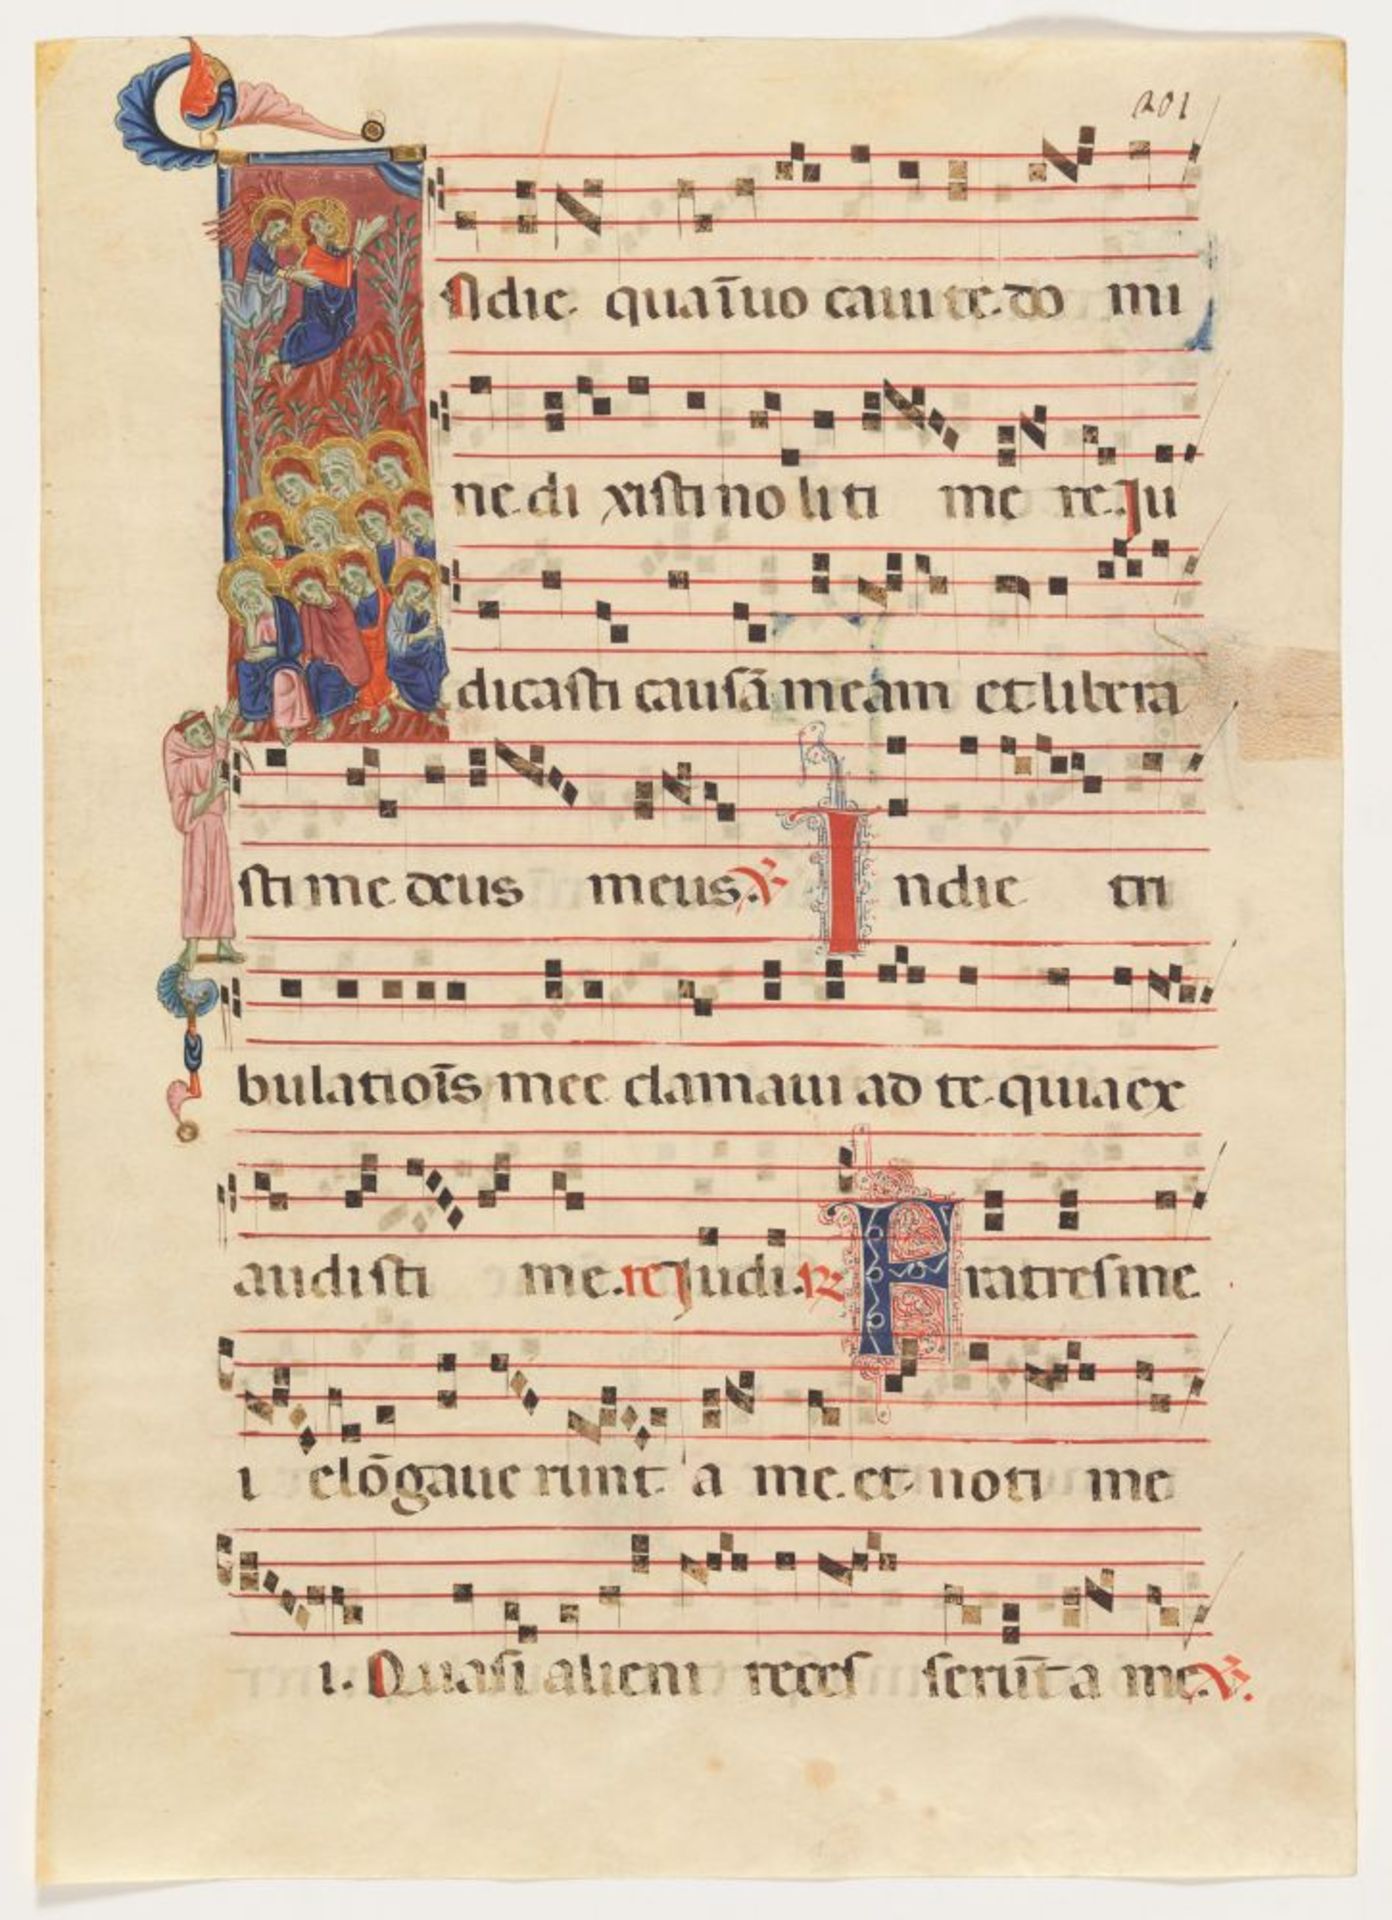 201
In die qua īuocaui te do mi
ne di xisti noli ti me re Ju
dicasti causā meam et libera
sti me deus meus. ℣ In die tri
bulatiōis mee clamaui ad te quia ex
audisti me. re Judi. ℟ Fratres me
i elōgaue runt a me et noti me
i. Quasi alieni reces serūt a me. ℣.